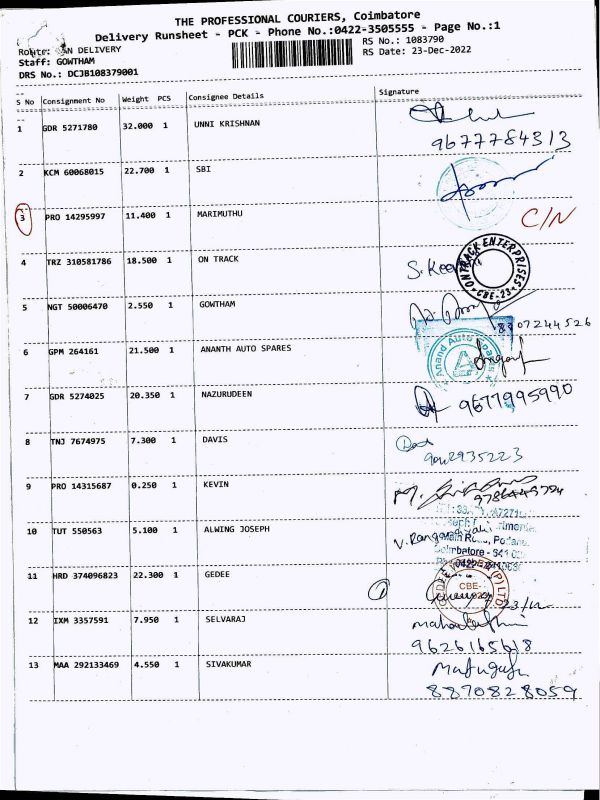 THE PROFESSIONAL COURIERS, Coimbatore
Delivery Runsheet - PCK - Phone No.:0422-3505555 - Page No.:1
AN DELIVERY
RS No.: 1083790
Staff: GOWTHAM
RS Date: 23-Dec-2022
DRS No.: DCJB108379001
S No Consignment No Weight PCS Consignee Details Signature
1 GDR 5271780 32.000 1 UNNI KRISHNAN
9677784313
2 KCM 60068015 22.700 1 SBI
3 PRO 14295997 11.400 1 MARIMUTHU C/N
4 TRZ 310581786 18.500 1 ON TRACK
ONTRACK ENTERPRISES
CBE-23
5 NGT 50006470 2.550 1 GOWTHAM
8907244526
6 GPM 264161 21.500 1 ANANTH AUTO SPARES
Anand Auto
7 GDR 5274025 20.350 1 NAZURUDEEN 9677995990
8 TNJ 7674975 7.300 1 DAVIS
9 PRO 14315687 0.250 1 KEVIN
10 TUT 550563 5.100 1 ALWING JOSEPH
11 HRD 374096823 22.300 1 GEDEE
(P) LTD
CBE-
12 IXM 3357591 7.950 1 SELVARAJ
9626165618
13 MAA 292133469 4.550 1 SIVAKUMAR
8870828059